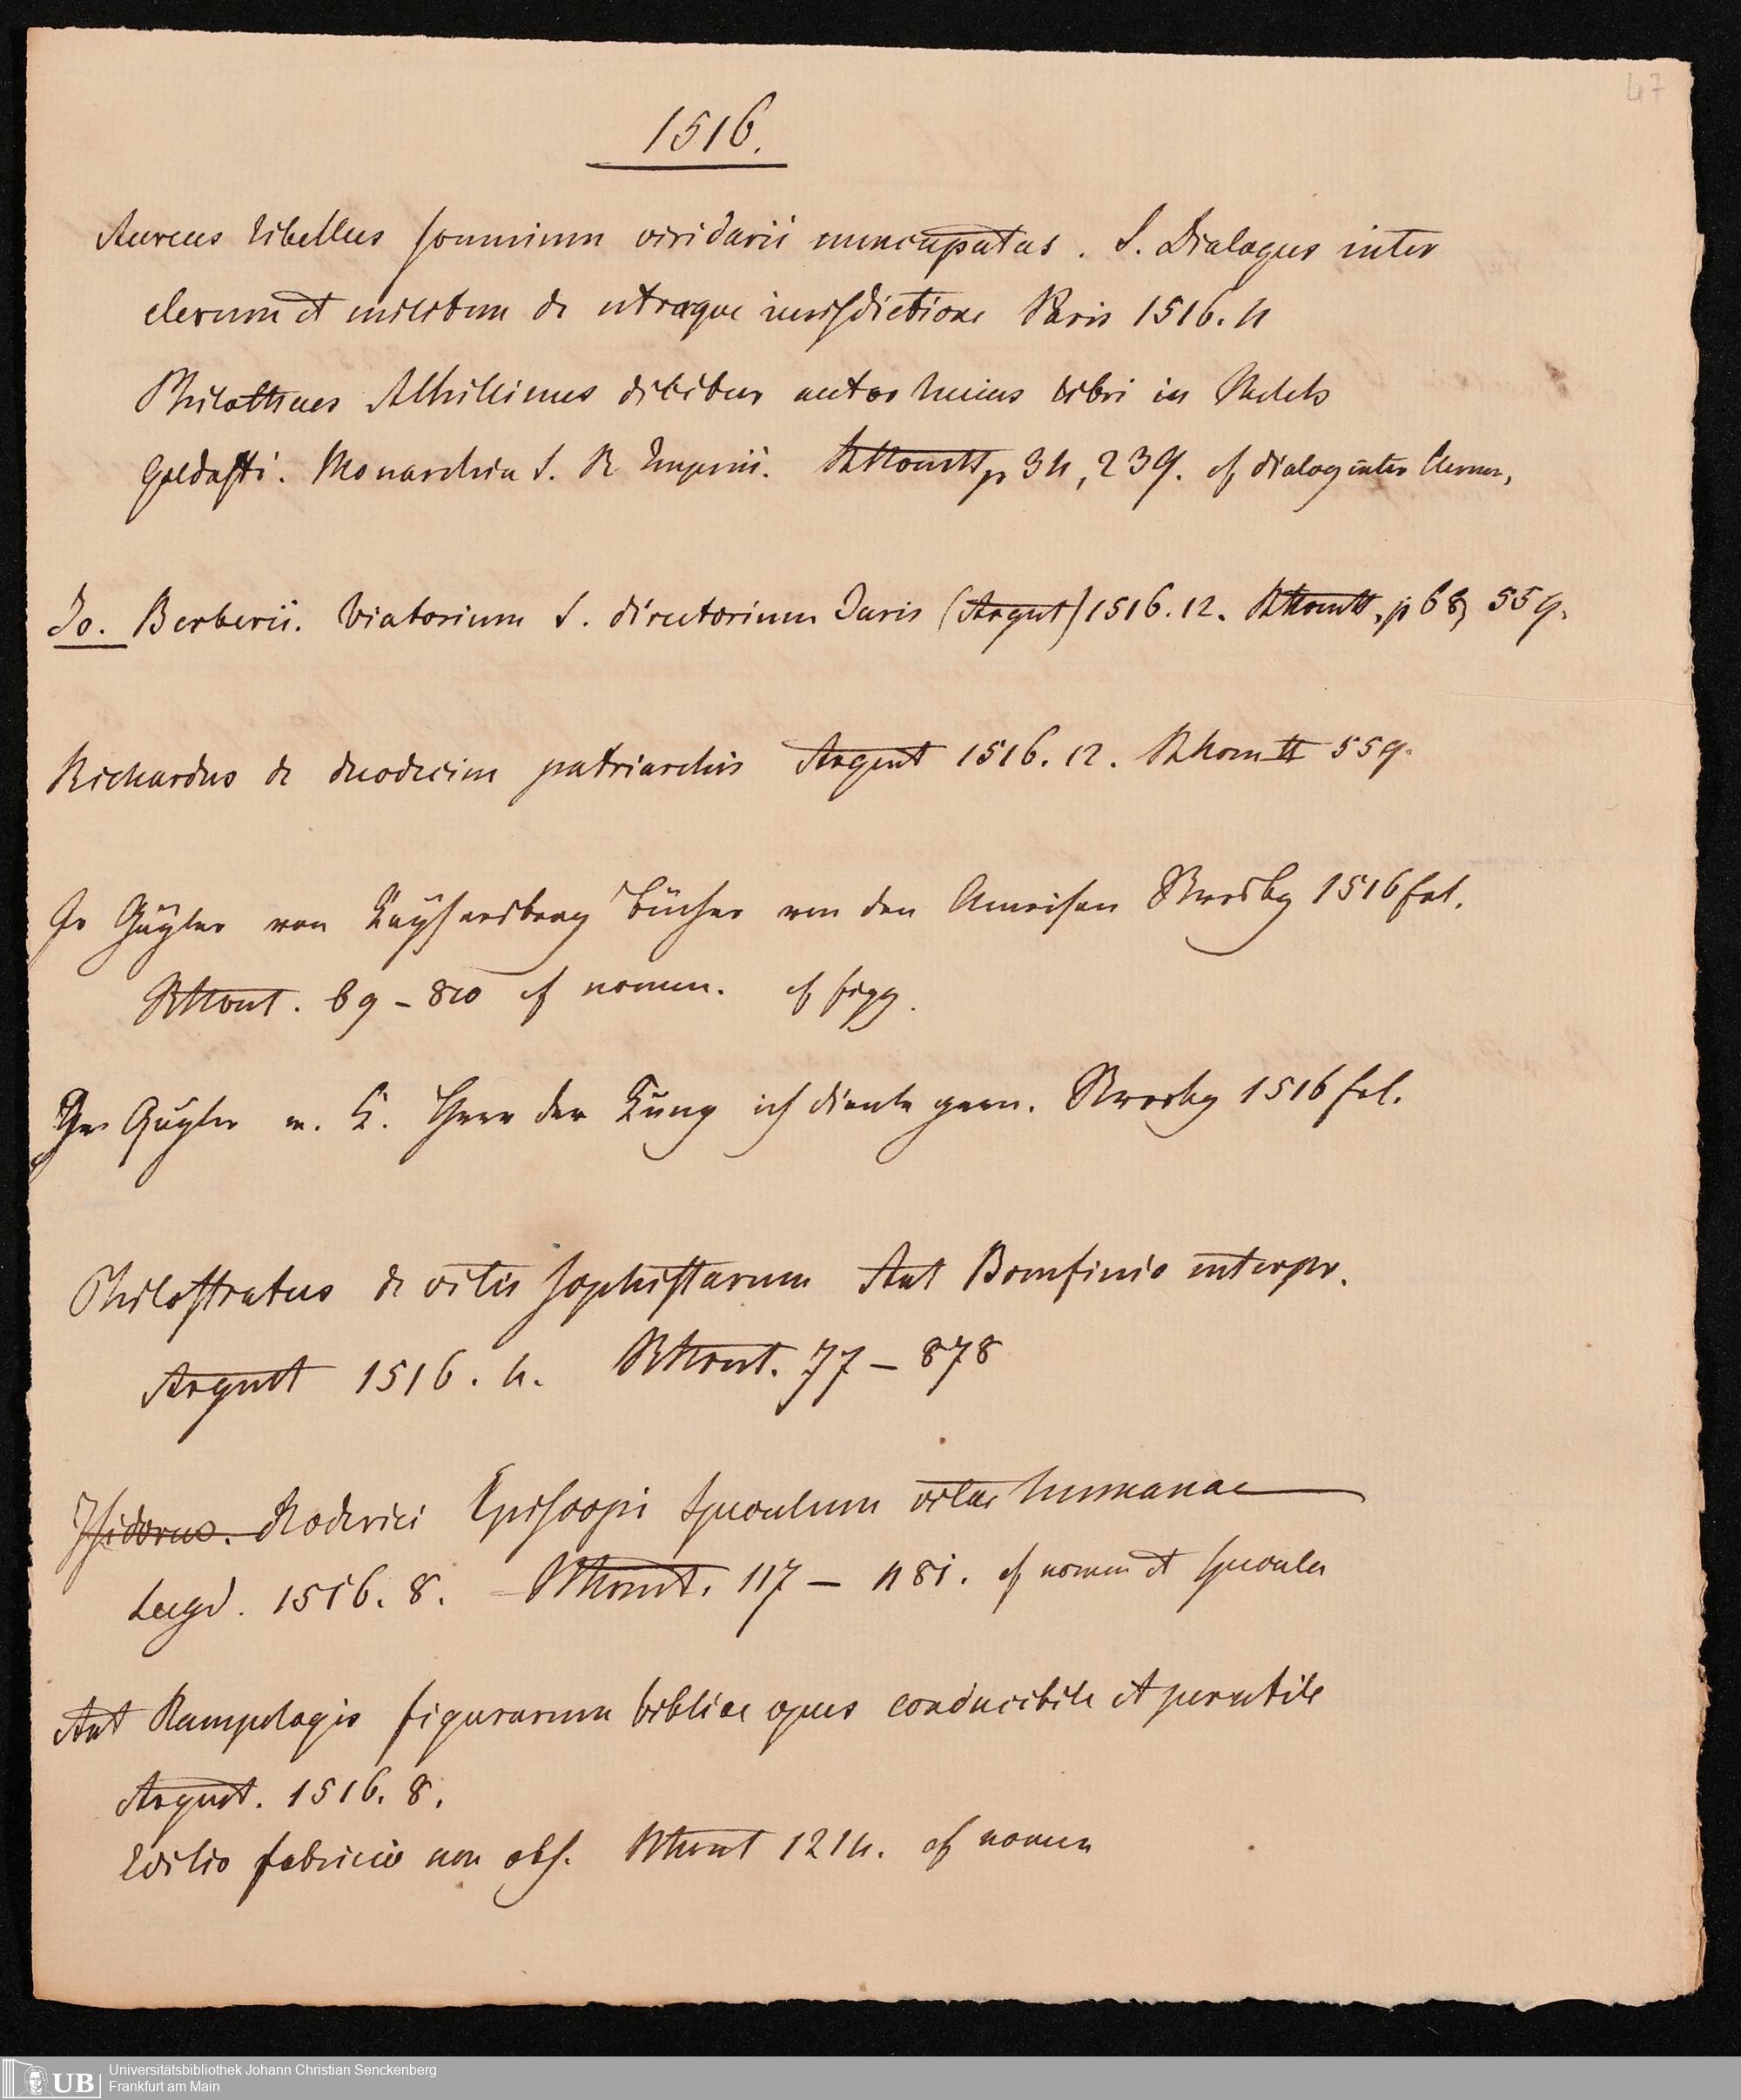 47
1516.
Aureus libellus somnium viridarii nuncupatus. S. Dialogus inter
clerum et militem de utraque iurisdictione Paris 1516. 4
Philotheus Athillinus dicitur autor huius libri in
Goldasti. Monarchia S. R Imperii. p 34, 239. cf dialog inter clerum,
Jo. Berberii. Viatorium S. directorium Juris (Argent) 1516. 12. p 68, 559.
Richardus de duodecim patriarchis Argent 1516. 12. 559.
Gäyler von Kaysersberg bücher von den Ameisen Strasbg 1516 fol.
69 – 810 cf nomen. cf figg.
Gäyler v. K. Herr der Küng ich diente gern. Strasbg 1516 fol.
Philostratus de vitis sophistarum Ant Bomfinio interpr.
Argent 1516. 4. 77 – 878
Isidorus. Roderici Episcopi speculum vitae humanae
Lugd. 1516. 8. 117 – 1181. cf nomen et specula
Ant Rampelogis figurarum bibliae opus conducibile et perutile
Argent. 1516. 8.
Editio fabricio non obs. 1214. cf nomen
UB Universitätsbibliothek Johann Christian Senckenberg
Frankfurt am Main